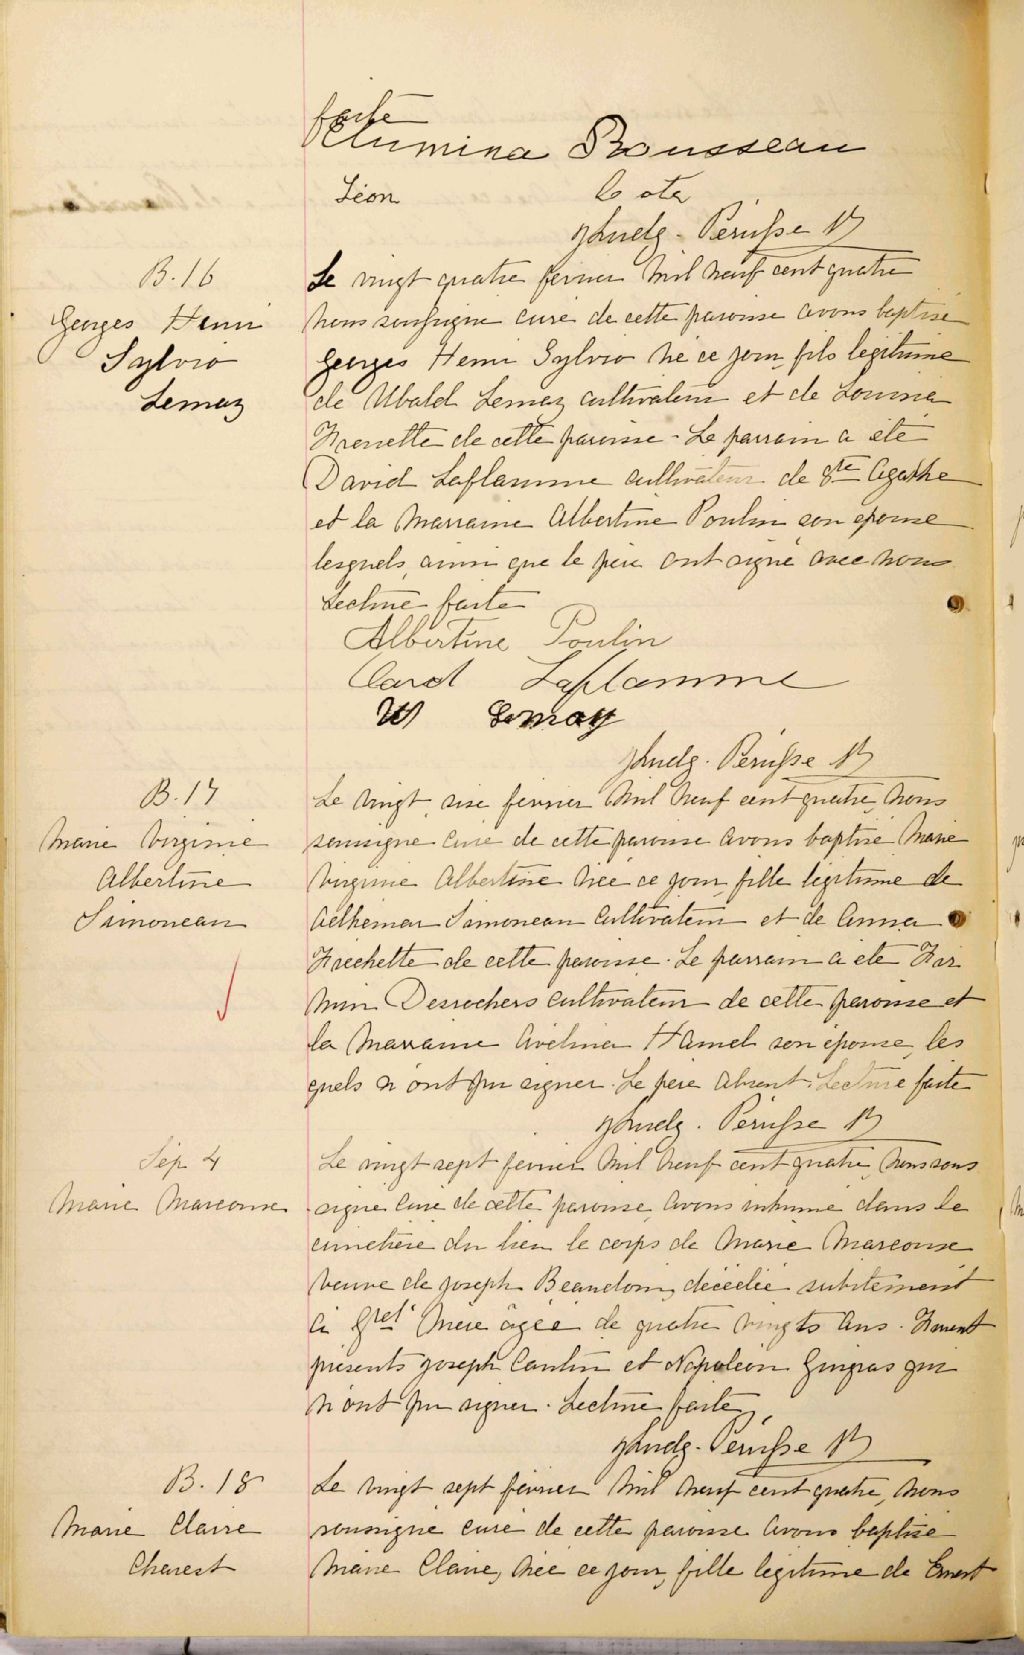 faite
Elumina Rousseau
Léon Coté
J Ludg. Pérusse Ptr
B. 16
Georges Henri
Sylvio
Lemay
Le vingt quatre fevrier mil neuf cent quatre
nous soussigné curé de cette paroisse avons baptisé
Georges Henri Sylvio né ce jour, fils legitime
de Ubald Lemay cultivateur et de
Frenette de cette paroisse. Le parrain a été
David Laflamme cultivateur de Ste Agathe
et la marraine Albertine Poulin son epouse
lesquels, ainsi que le père ont signé avec nous
Lecture faite
Albertine Poulin
Laflamme
Lemay
J Ludg. Pérusse Ptr
B. 17
Marie Virginie
Albertine
Simoneau
Le vingt sise fevrier mil neuf cent quatre, nous
soussigné curé de cette paroisse avons baptisé Marie
Virginie Albertine née ce jour, fille légitime de
Adhémar Simoneau cultivateur et de Anna
Frechette de cette paroisse. Le parrain a été Fir
min Desrochers cultivateur de cette paroisse et
la marraine Avelina Hamel son épouse, les
quels n'ont pu signer. Le père absent. Lecture faite
J Ludg. Pérusse Ptr
Sép 4
Marie Marcoux
Le vingt sept fevrier mil neuf cent quatre, nous sous
signé curé de cette paroisse, avons inhumé dans le
cimetière du lieu le corps de Marie Marcoux
veuve de Joseph Beaudoin, décédée subitement
à Gret' Mère âgée de quatre vingts ans. Furent
présents Joseph Cantin et Napoléon Gingras qui
n'ont pu signer. Lecture faite,
J Ludg. Pérusse Ptr
B. 18
Marie Claire
Charest
Le vingt sept fevrier mil neuf cent quatre, nous
soussigné curé de cette paroisse avons baptisé
Marie Claire, née ce jour, fille légitime de Ernest